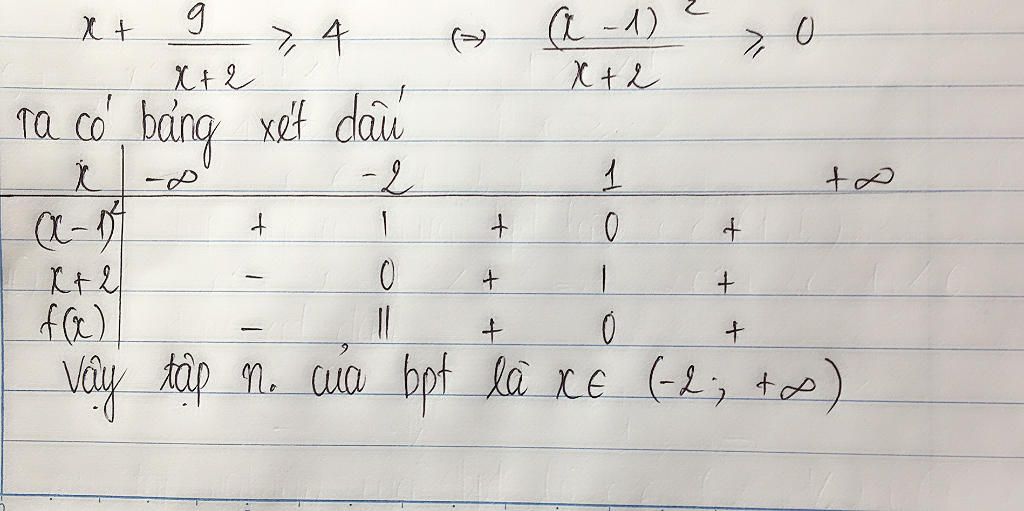 x + 9/(x+2) ≥ 4 (=) (x-1)²/(x+2) ≥ 0
Ta có bảng xét dấu
x | -∞ -2 1 +∞
(x-1)² | + | + 0 +
x+2 | - 0 + | +
f(x) | - || + 0 +
Vậy tập n. của bpt là x∈ (-2; +∞)